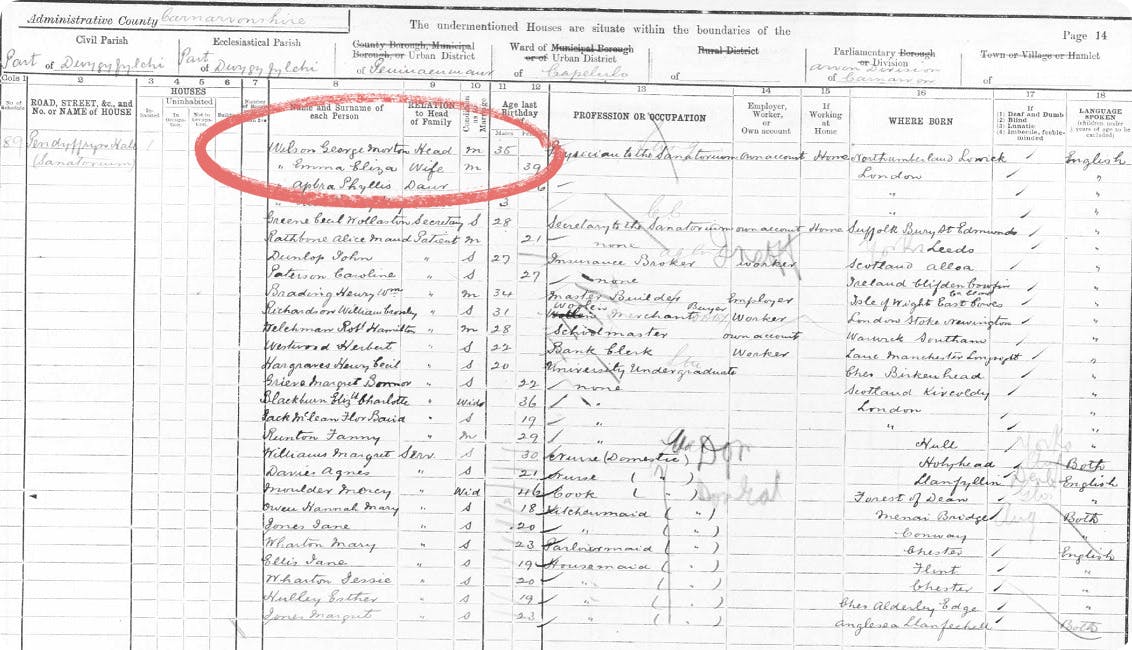 Administrative County Carnarvonshire
The undermentioned Houses are situate within the boundaries of the
Page 14
Civil Parish
Ecclesiastical Parish
County Borough, Municipal Borough, or Urban District
Ward of Municipal Borough or of Urban District
Rural District
Parliamentary Borough or Division
Town or Village or Hamlet
Part of Dwygyfylchi
Part of Dwygyfylchi
of Penmaenmawr
of Capelulo
of
Arvon Division Carnarvon
of
Cols 1 2 3 4 5 6 7 8 9 10 11 12 13 14 15 16 17 18
No. of Schedule
ROAD, STREET, &c., and No. or NAME of HOUSE
HOUSES
Inhabited
Uninhabited
In Occupation
Not in Occupation
Name and Surname of each Person
RELATION to Head of Family
Condition as to Marriage
Age last Birthday
Males
PROFESSION OR OCCUPATION
Employer, Worker, or Own account
If Working at Home
WHERE BORN
(1) Deaf and Dumb
(2) Blind
(3) Lunatic
(4) Imbecile, feeble-minded
LANGUAGE SPOKEN (children under 3 years of age to be excluded)
89 Pendyffryn Hall 1 Wilson George Morton Head M 35 Physician to the Sanatorium Own account Home Northumberland Lowick English
(Sanatorium) " Emma Eliza Wife M 39 London "
" Aphra Phyllis Daur 6 " "
3 " "
Greene Cecil Wollaston Secretary S 28 Secretary to the Sanatorium own account Home Suffolk Bury St Edmunds "
Rathbone Alice Maud Patient M 21 none Yorks Leeds "
Dunlop John " S 27 Insurance Broker Worker Scotland Alloa "
Paterson Caroline " S 27 none Ireland "
Brading Henry Wm " M 34 Master Builder Employer Isle of Wight East Cowes "
Richardson William " S 31 Woolen Merchant Buyer Worker London Stoke Newington "
Welchman Robt Hamilton " M 28 Schoolmaster own account Warwick Southam "
Westwood Herbert " S 22 Bank Clerk Worker Lanc Manchester Longsight "
Hargraves Henry Cecil " S 20 University Undergraduate Ches Birkenhead "
Grieve Margret Bonnor " S 22 none Scotland "
Blackburn Elizth Charlotte " Wid 36 " London "
Jack McLean Flor Baird " S 19 " " "
Runton Fanny " M 29 " Hull Yorks "
Williams Margret Serv S 30 Nurse (Domestic) Holyhead Both
Davies Agnes " S 21 Nurse ( " ) Llanfyllin English
Moulder Mercy " Wid 46 Cook ( " ) Forest of Dean "
Owen Hannah Mary " S 18 Kitchenmaid ( " ) Menai Bridge Both
Jones Jane " S 20 " ( " ) Conway "
Wharton Mary " S 23 Parlourmaid ( " ) Chester English
Ellis Jane " S 19 Housemaid ( " ) Flint "
Wharton Jessie " S 20 " ( " ) Chester "
Hulley Esther " S 19 " ( " ) Ches Alderley Edge "
Jones Margret " S 23 " ( " ) Anglesea Llanfechell Both